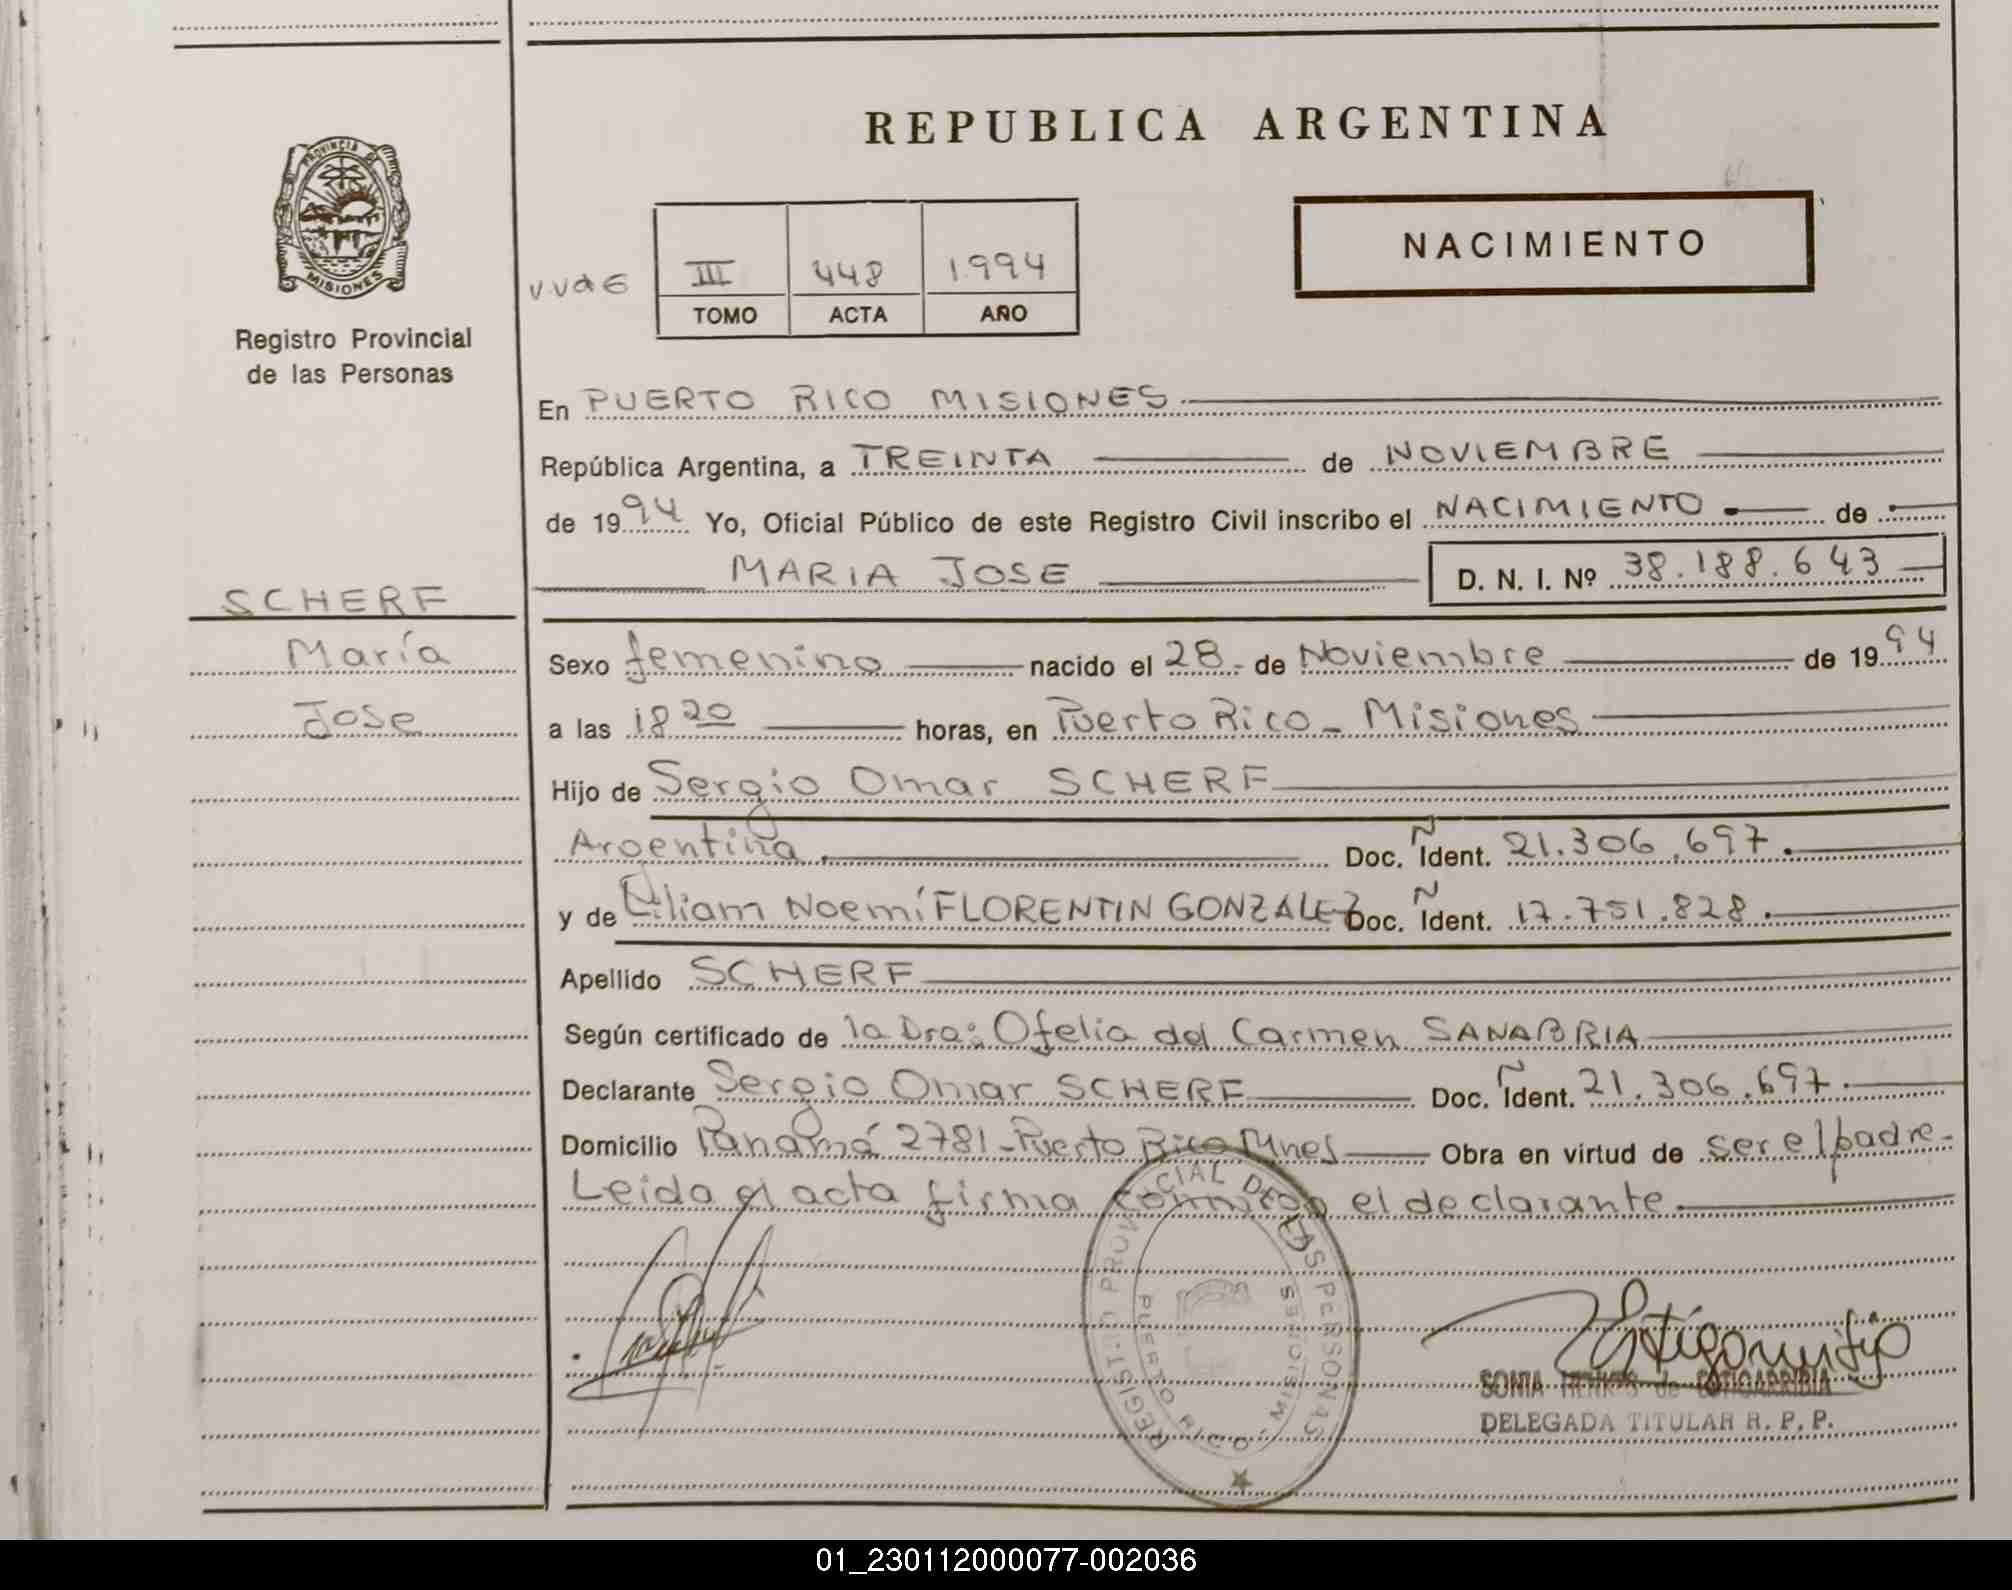 REPUBLICA ARGENTINA
PROVINCIA DE
MISIONES
Registro Provincial
de las Personas
NACIMIENTO
III 448 1994
TOMO ACTA AÑO
En PUERTO RICO MISIONES
República Argentina, a TREINTA de NOVIEMBRE
de 1994 Yo, Oficial Público de este Registro Civil inscribo el NACIMIENTO de
MARIA JOSE D. N. I. Nº 38.188.643
SCHERF
María
Jose
Sexo femenino nacido el 28 de Noviembre de 1994
a las 18 20 horas, en Puerto Rico - Misiones
Hijo de Sergio Omar SCHERF
Argentina Doc. Ident. 21.306.697.
y de Liliam Noemí FLORENTIN GONZALEZ Doc. Ident. 17.751.828.
Apellido SCHERF
Según certificado de la Dra: Ofelia del Carmen SANABRIA
Declarante Sergio Omar SCHERF Doc. Ident. 21.306.697.
Domicilio Panamá 2781 - Puerto Rico Mnes Obra en virtud de ser el padre.
Leida el acta firma conmigo el declarante.
REGISTRO PROVINCIAL DE LAS PERSONAS
PUERTO RICO MISIONES
SONIA de ESTIGARRIBIA
DELEGADA TITULAR R. P. P.
01_230112000077-002036